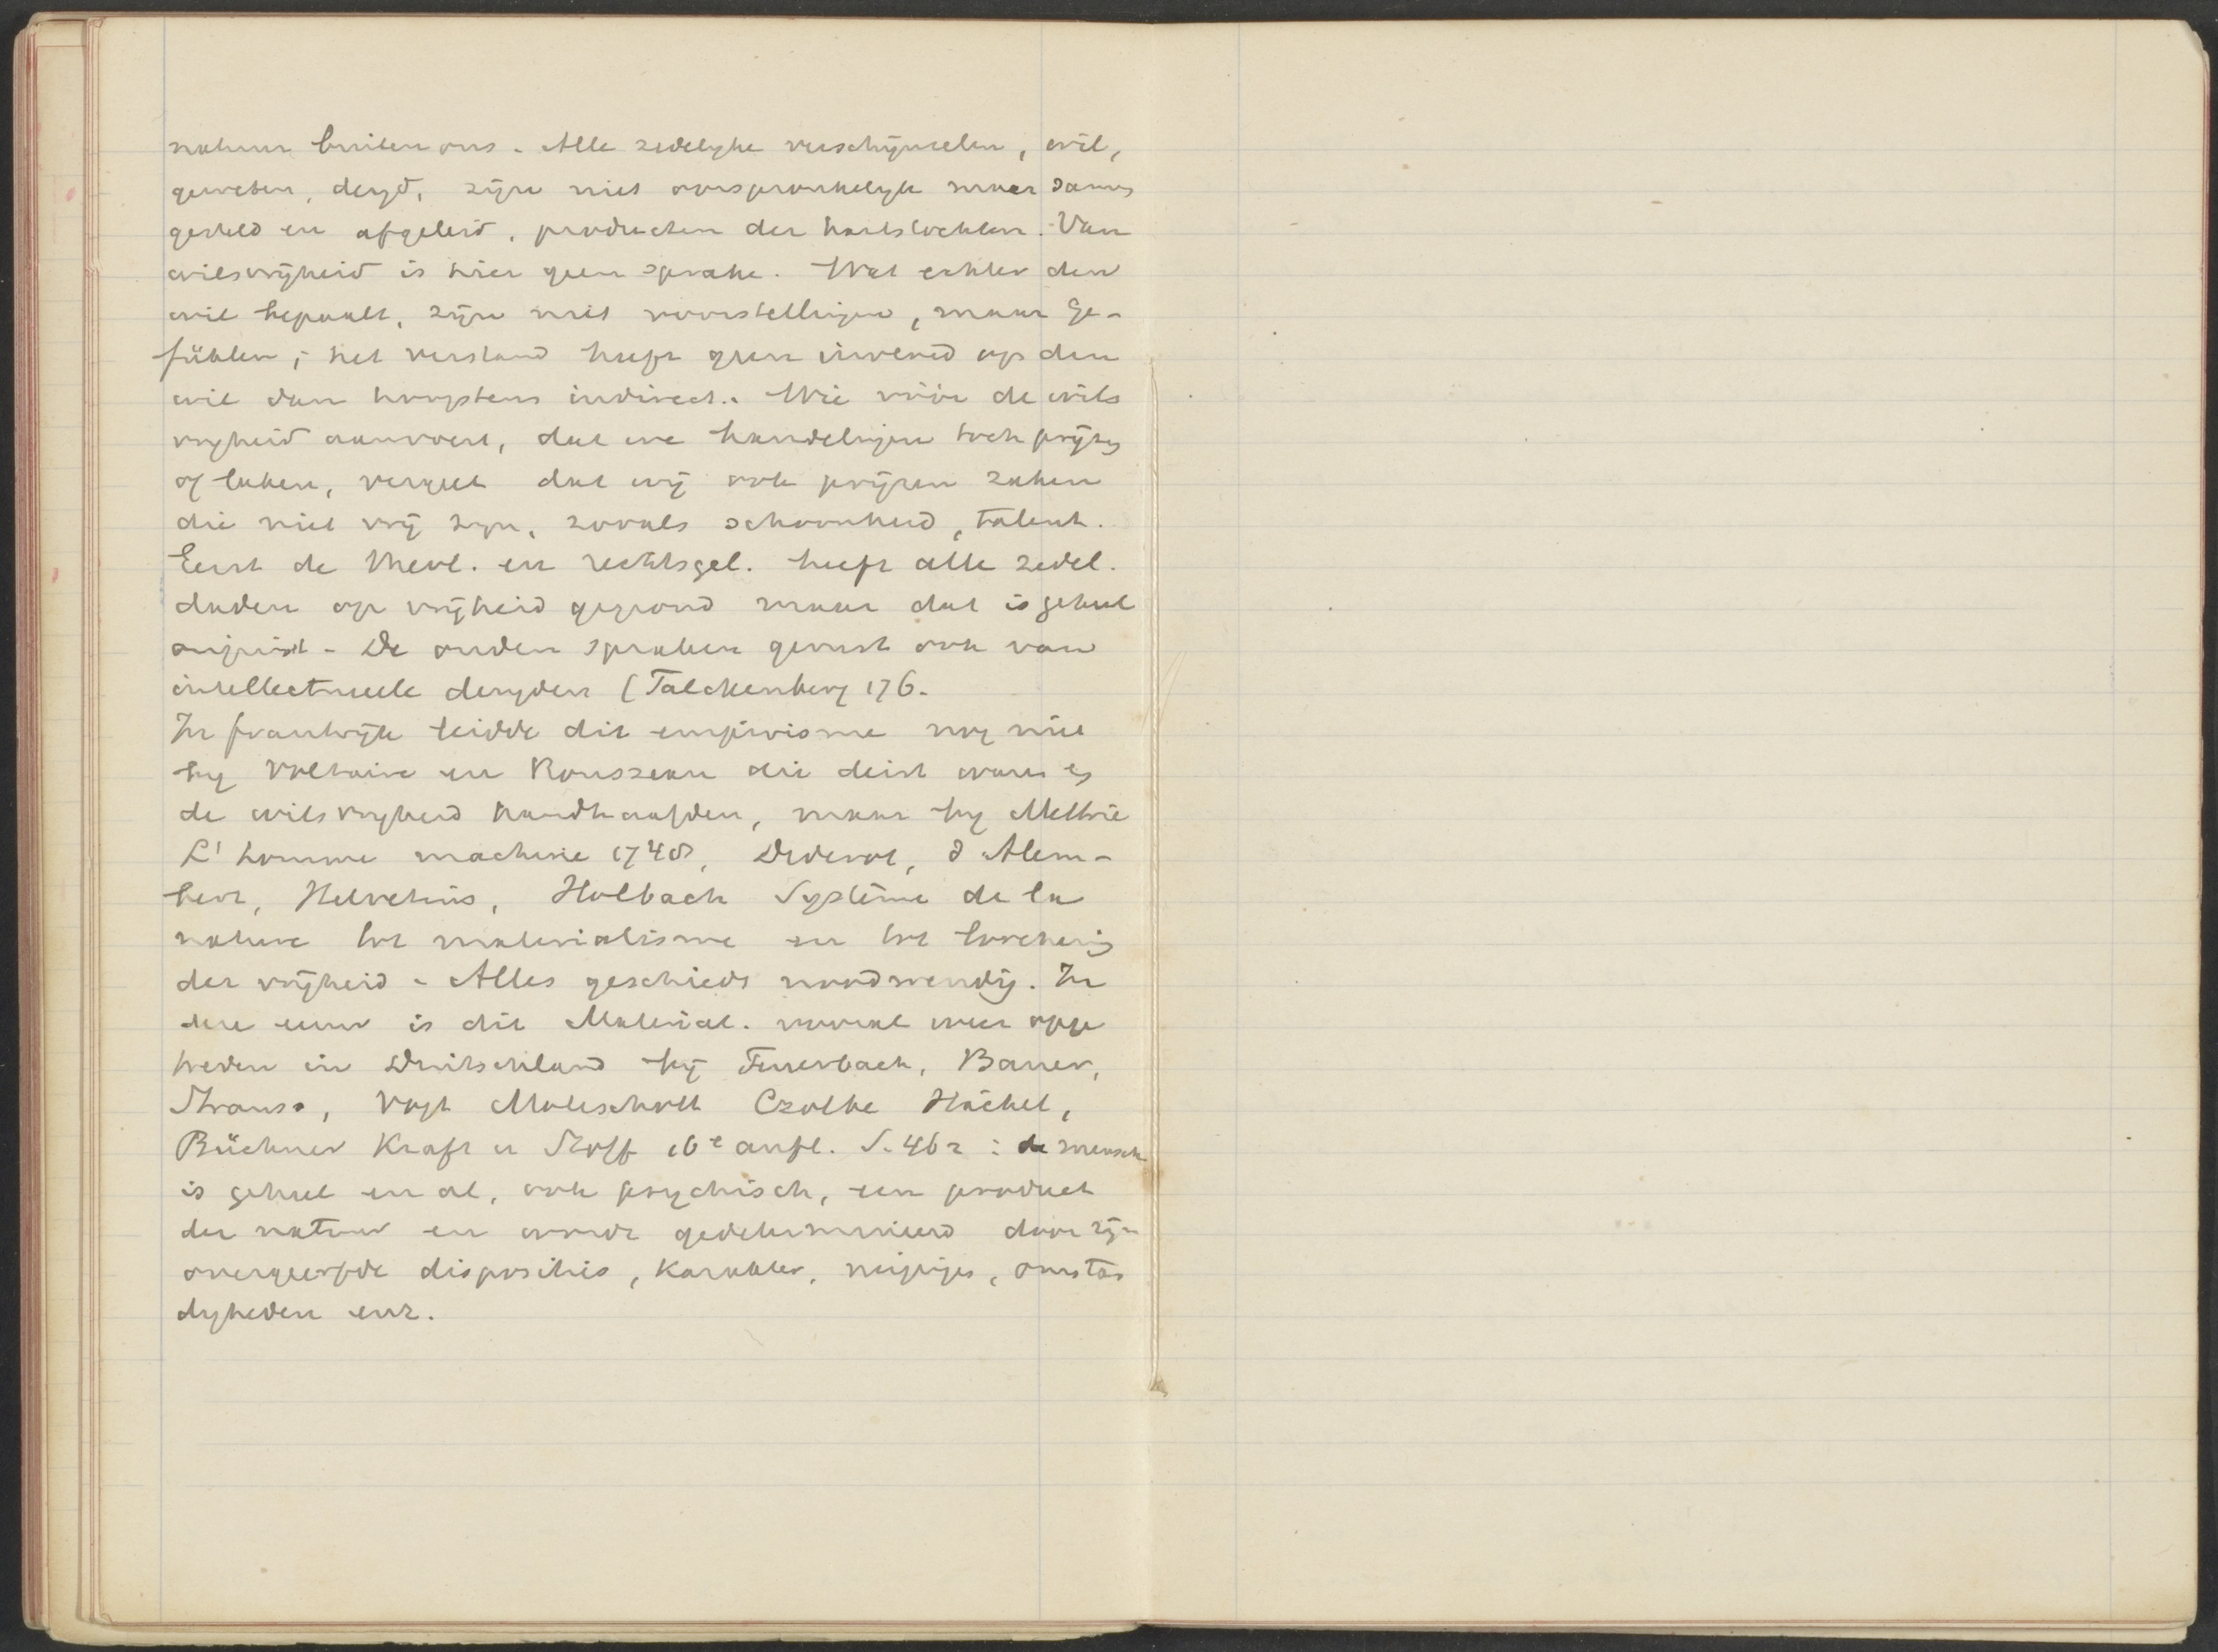 natuur buiten ons - Alle zedelyke verschijnselen, wil,
geweten, deugd, zijn niet oorspronkelyk maar samen
gesteld en afgeleid, producten der hartstochten. Van
wilsvrijheid is hier geen sprake. Wat echter den
wil bepaalt, zijn niet voorstellingen, maar Ge-
fühlen; het verstand heeft geen invloed op den
wil dan hoogstens indirect. Wie vóór de wils
vryheid aanvoert, dat we handelingen toch prijzen
of laken, vergeet dat wij ook prijzen zaken
die niet vrij zyn, zooals schoonheid, talent.
Eerst de theol. en rechtsgel. heeft alle zedel.
daden op vrijheid gegrond maar dat is geheel
onjuist - De ouden spraken gerust ook van
intellectueele deugden (Falckenberg 176.
In frankrijk leidde dit empirisme nog niet
by Voltaire en Rousseau die deist waren en
de wilsvryheid handhaafden, maar by Mettrie
L'homme machine 1748, Diderot, d'Alem-
bert, Helvetius, Holbach Système de la
nature tot materialisme en tot loochening
der vrijheid - Alles geschiedt noodwendig. In
deze eeuw is dit Material. vooral weer opge
treden in Duitschland bij Feuerbach, Bauer,
Strauss, Vogt Moleschott Czolbe Häckel,
Büchner Kraft u Stoff 16e aufl. S. 462 : de mensch
is geheel en al, ook psychisch, een product
der natuur en wordt gedetermineerd door zijn
overgeerfde dispositie, karakter, neigingen, omstan
digheden enz.